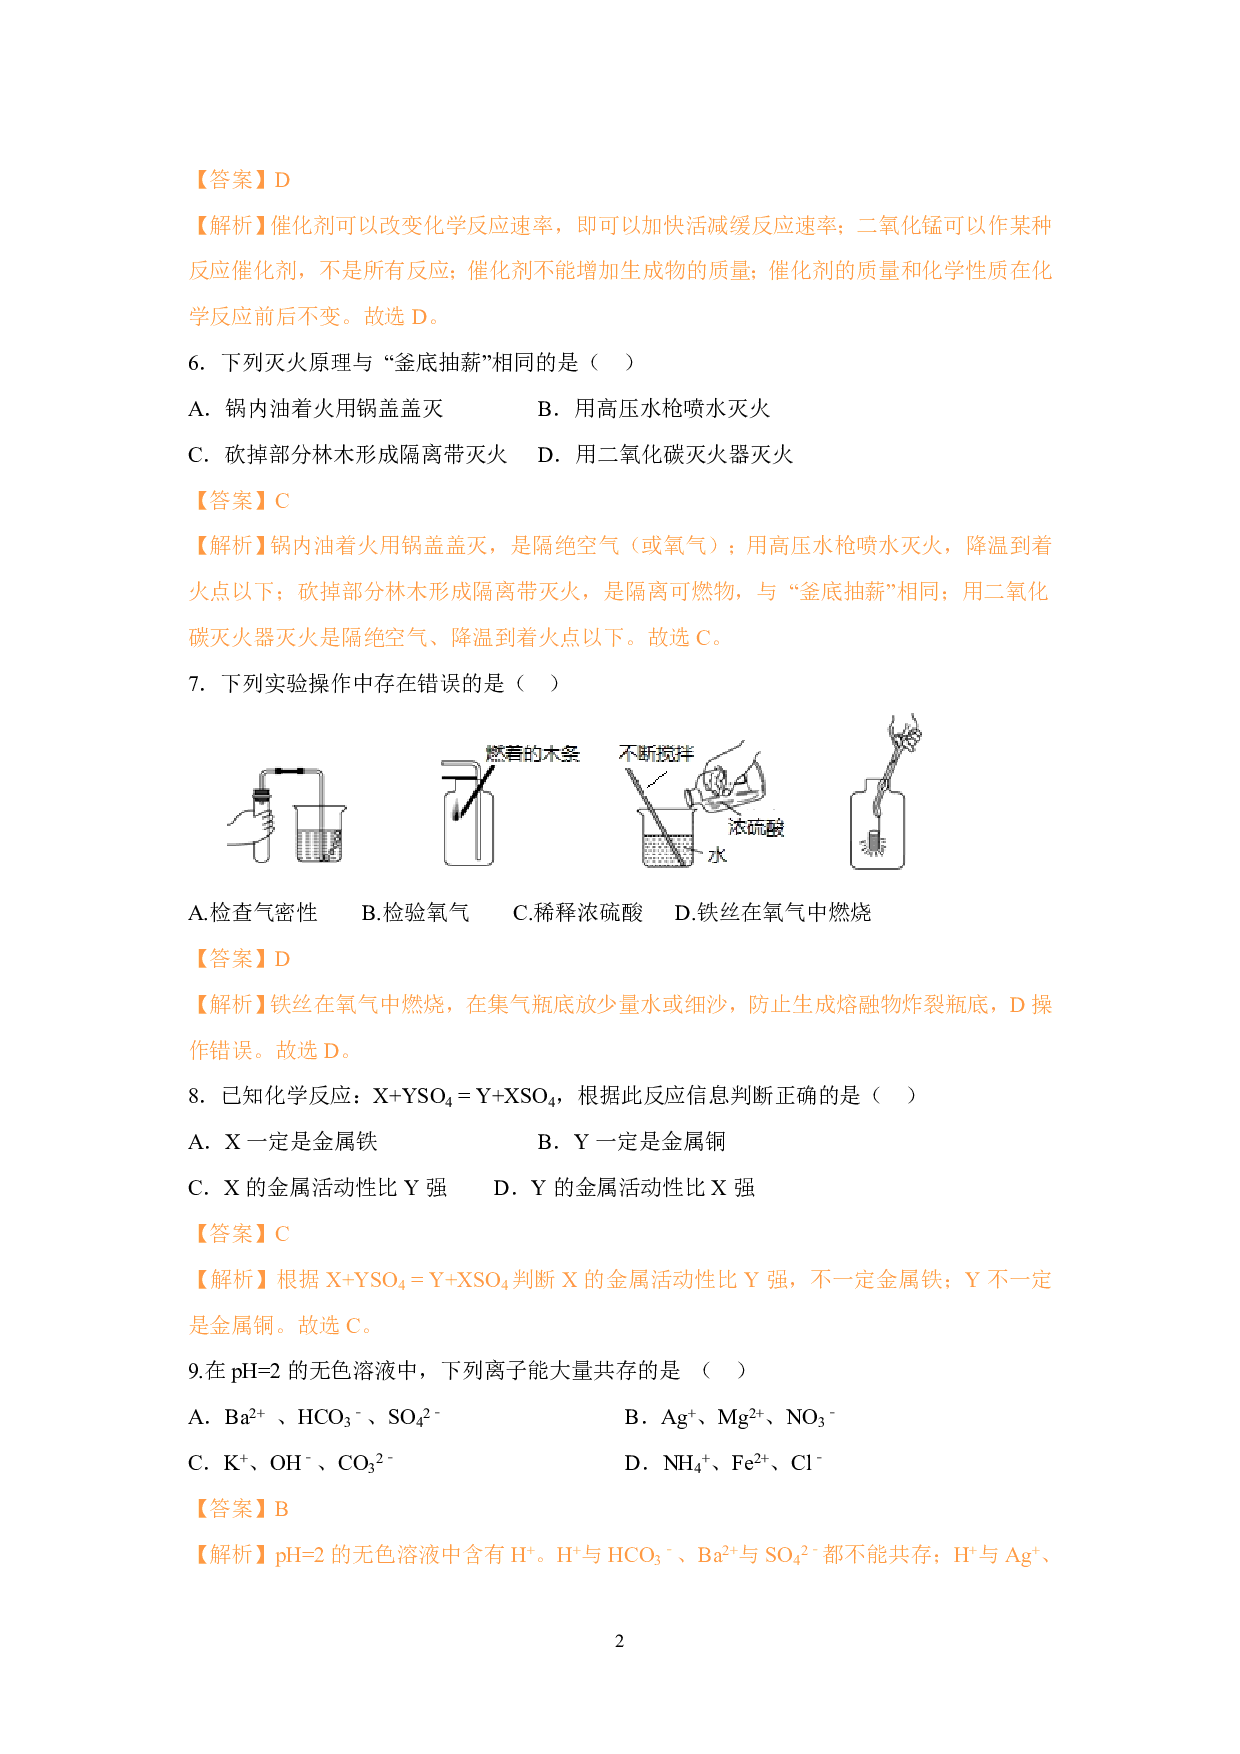 【答案】D
【解析】催化剂可以改变化学反应速率，即可以加快活减缓反应速率；二氧化锰可以作某种
反应催化剂，不是所有反应；催化剂不能增加生成物的质量；催化剂的质量和化学性质在化
学反应前后不变。故选 D。
6．下列灭火原理与 “釜底抽薪”相同的是（　）
A．锅内油着火用锅盖盖灭　　B．用高压水枪喷水灭火
C．砍掉部分林木形成隔离带灭火　D．用二氧化碳灭火器灭火
【答案】C
【解析】锅内油着火用锅盖盖灭，是隔绝空气（或氧气）；用高压水枪喷水灭火，降温到着
火点以下；砍掉部分林木形成隔离带灭火，是隔离可燃物，与 “釜底抽薪”相同；用二氧化
碳灭火器灭火是隔绝空气、降温到着火点以下。故选 C。
7．下列实验操作中存在错误的是（　）
燃着的木条　不断搅拌
浓硫酸
水
A.检查气密性　B.检验氧气　C.稀释浓硫酸　D.铁丝在氧气中燃烧
【答案】D
【解析】铁丝在氧气中燃烧，在集气瓶底放少量水或细沙，防止生成熔融物炸裂瓶底，D 操
作错误。故选 D。
8．已知化学反应：X+YSO₄ = Y+XSO₄，根据此反应信息判断正确的是（　）
A．X 一定是金属铁　　B．Y 一定是金属铜
C．X 的金属活动性比 Y 强　　D．Y 的金属活动性比 X 强
【答案】C
【解析】根据 X+YSO₄ = Y+XSO₄ 判断 X 的金属活动性比 Y 强，不一定金属铁；Y 不一定
是金属铜。故选 C。
9.在 pH=2 的无色溶液中，下列离子能大量共存的是 （　）
A．Ba²⁺ 、HCO₃⁻、SO₄²⁻　　B．Ag⁺、Mg²⁺、NO₃⁻
C．K⁺、OH⁻、CO₃²⁻　　D．NH₄⁺、Fe²⁺、Cl⁻
【答案】B
【解析】pH=2 的无色溶液中含有 H⁺。H⁺与 HCO₃⁻、Ba²⁺与 SO₄²⁻都不能共存；H⁺与 Ag⁺、
2